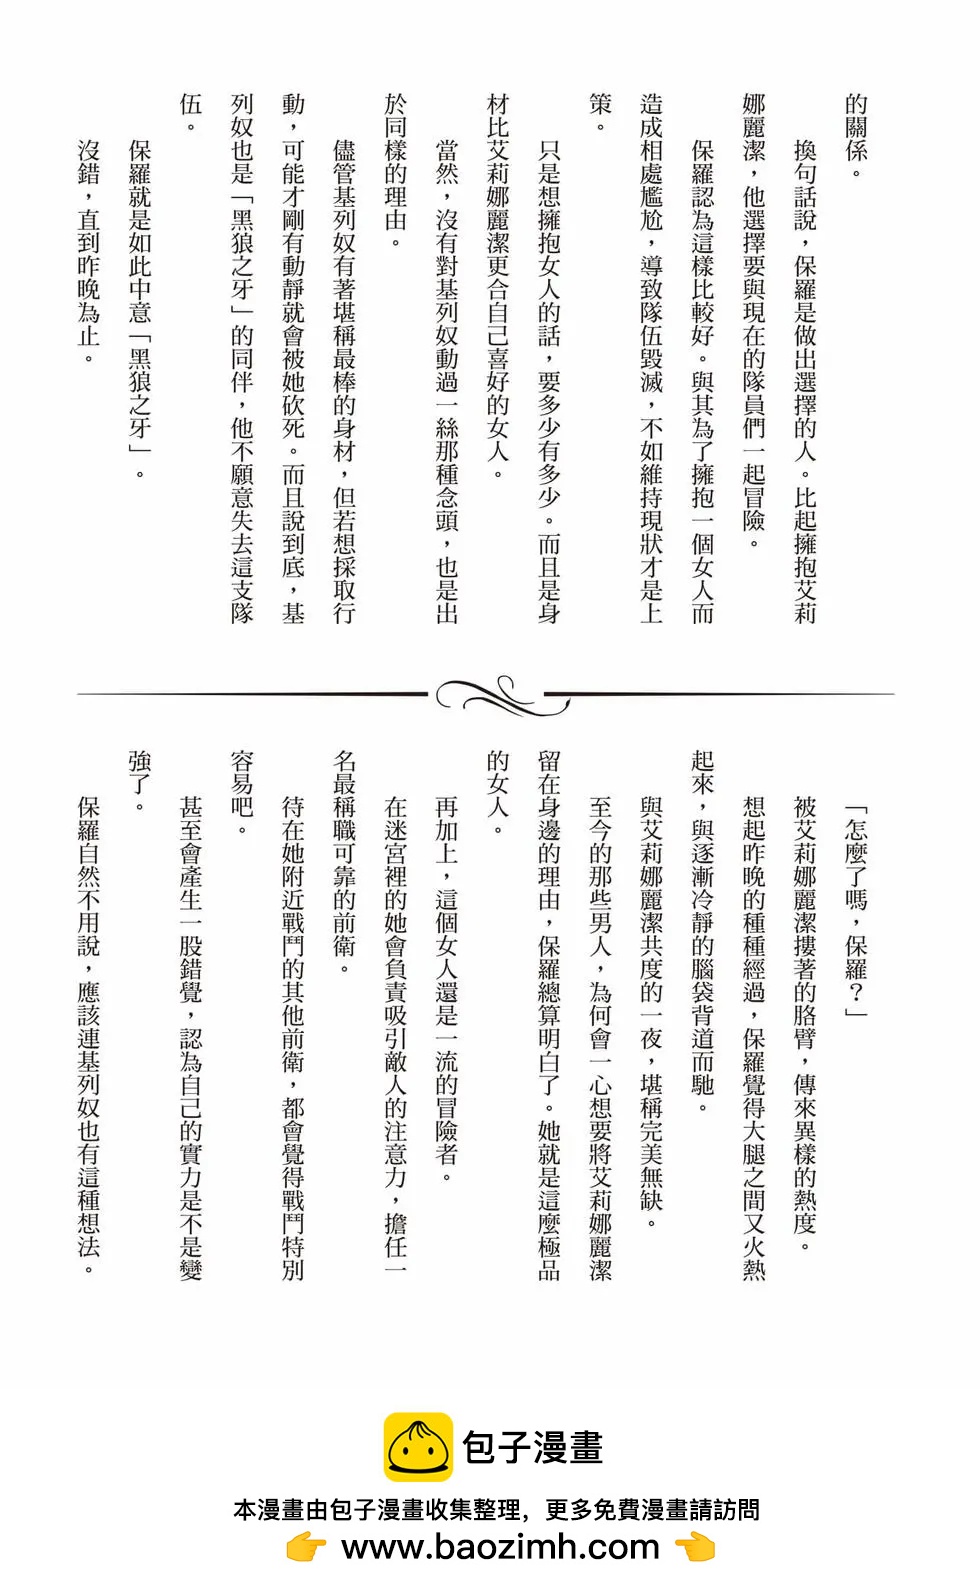 的關係。
換句話說，保羅是做出選擇的人。比起擁抱艾莉
娜麗潔，他選擇要與現在的隊員們一起冒險。
保羅認為這樣比較好。與其為了擁抱一個女人而
造成相處尷尬，導致隊伍毀滅，不如維持現狀才是上
策。
只是想擁抱女人的話，要多少有多少。而且是身
材比艾莉娜麗潔更合自己喜好的女人。
當然，沒有對基列奴動過一絲那種念頭，也是出
於同樣的理由。
儘管基列奴有著堪稱最棒的身材，但若想採取行
動，可能才剛有動靜就會被她砍死。而且說到底，基
列奴也是「黑狼之牙」的同伴，他不願意失去這支隊
伍。
保羅就是如此中意「黑狼之牙」。
沒錯，直到昨晚為止。
「怎麼了嗎，保羅？」
被艾莉娜麗潔摟著的胳臂，傳來異樣的熱度。
想起昨晚的種種經過，保羅覺得大腿之間又火熱
起來，與逐漸冷靜的腦袋背道而馳。
與艾莉娜麗潔共度的一夜，堪稱完美無缺。
至今的那些男人，為何會一心想要將艾莉娜麗潔
留在身邊的理由，保羅總算明白了。她就是這麼極品
的女人。
再加上，這個女人還是一流的冒險者。
在迷宮裡的她會負責吸引敵人的注意力，擔任一
名最稱職可靠的前衛。
待在她附近戰鬥的其他前衛，都會覺得戰鬥特別
容易吧。
甚至會產生一股錯覺，認為自己的實力是不是變
強了。
保羅自然不用說，應該連基列奴也有這種想法。
包子漫畫
本漫畫由包子漫畫收集整理，更多免費漫畫請訪問
www.baozimh.com